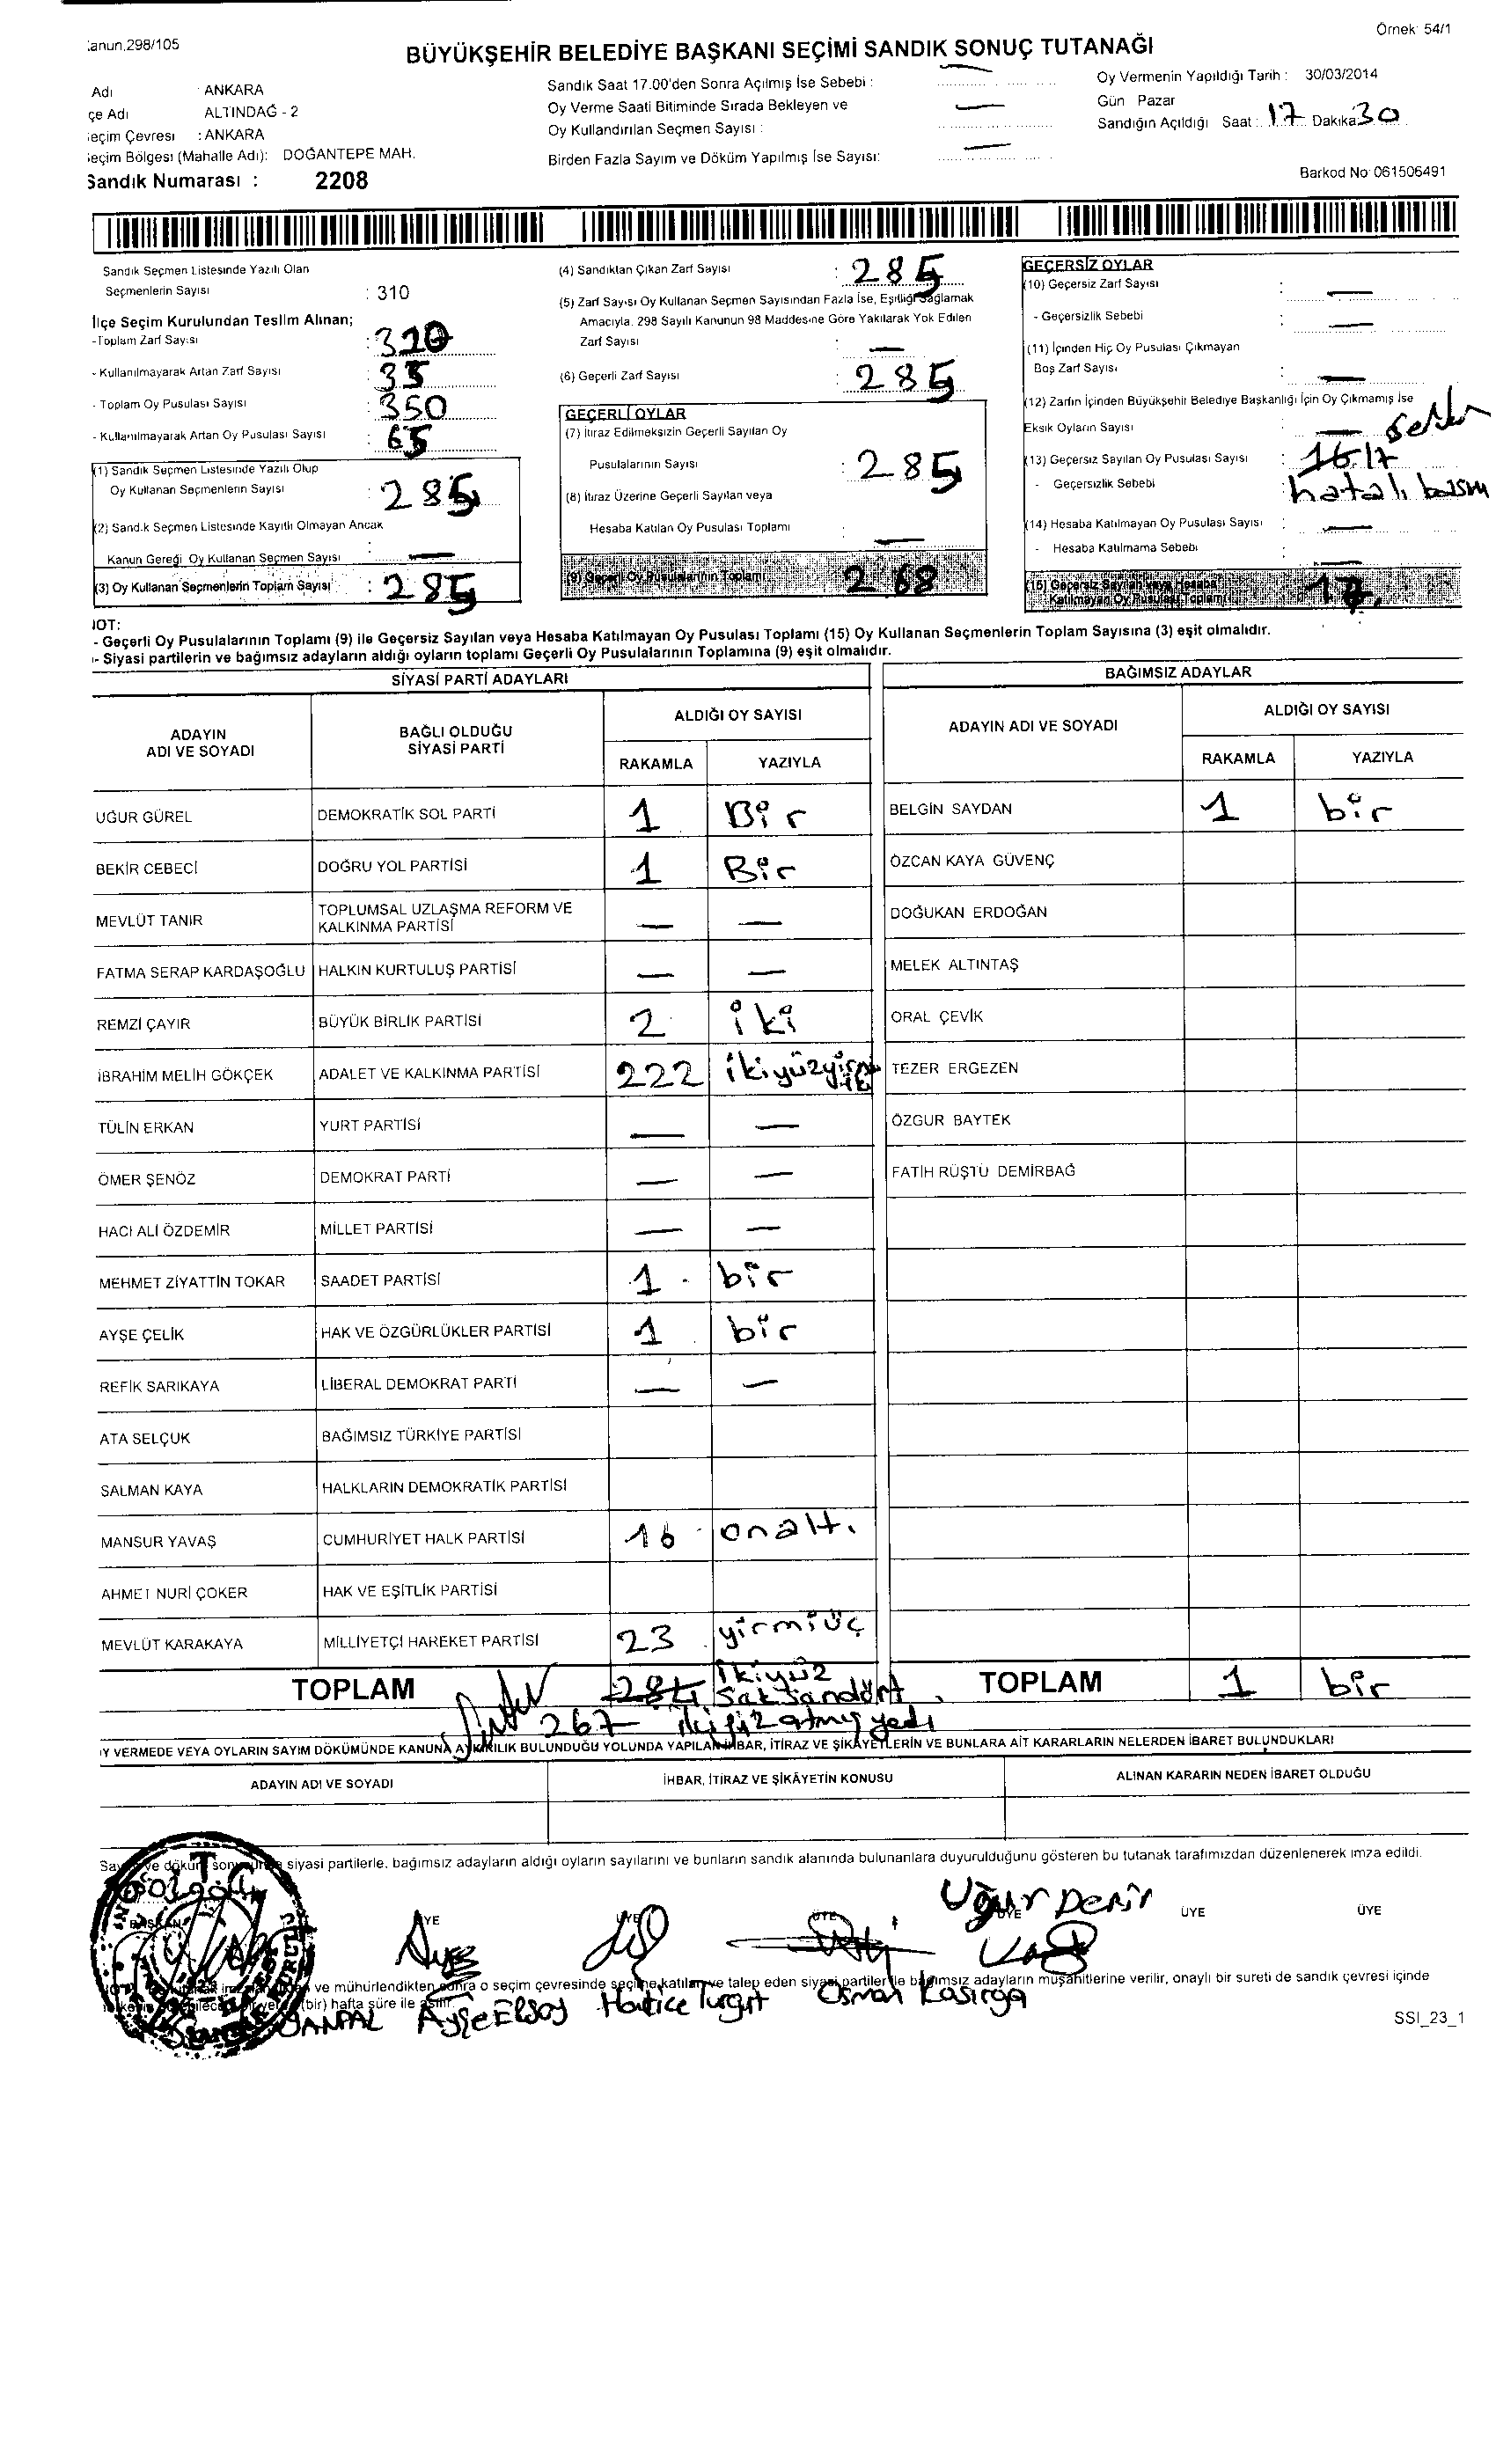 Örnek: 54/1
anun.298/105
BÜYÜKŞEHİR BELEDİYE BAŞKANI SEÇİMİ SANDIK SONUÇ TUTANAĞI
Adı : ANKARA
çe Adı ALTINDAĞ - 2
eçim Çevresi : ANKARA
eçim Bölgesi (Mahalle Adı): DOĞANTEPE MAH.
Sandık Numarası : 2208
Sandık Saat 17.00'den Sonra Açılmış İse Sebebi : —
Oy Verme Saati Bitiminde Sırada Bekleyen ve
Oy Kullandırılan Seçmen Sayısı : —
Birden Fazla Sayım ve Döküm Yapılmış İse Sayısı: —
Oy Vermenin Yapıldığı Tarih : 30/03/2014
Gün Pazar
Sandığın Açıldığı Saat : 17 Dakika 30
Barkod No: 061506491
Sandık Seçmen Listesinde Yazılı Olan
Seçmenlerin Sayısı : 310
İlçe Seçim Kurulundan Teslim Alınan;
-Toplam Zarf Sayısı : 320
- Kullanılmayarak Artan Zarf Sayısı : 35
- Toplam Oy Pusulası Sayısı : 350
- Kullanılmayarak Artan Oy Pusulası Sayısı : 65
(1) Sandık Seçmen Listesinde Yazılı Olup
Oy Kullanan Seçmenlerin Sayısı : 285
(2) Sandık Seçmen Listesinde Kayıtlı Olmayan Ancak
Kanun Gereği Oy Kullanan Seçmen Sayısı : —
(3) Oy Kullanan Seçmenlerin Toplam Sayısı : 285
(4) Sandıktan Çıkan Zarf Sayısı : 285
(5) Zarf Sayısı Oy Kullanan Seçmen Sayısından Fazla İse, Eşitliği Sağlamak
Amacıyla, 298 Sayılı Kanunun 98 Maddesine Göre Yakılarak Yok Edilen
Zarf Sayısı : —
(6) Geçerli Zarf Sayısı : 285
GEÇERLİ OYLAR
(7) İtiraz Edilmeksizin Geçerli Sayılan Oy
Pusulalarının Sayısı : 285
(8) İtiraz Üzerine Geçerli Sayılan veya
Hesaba Katılan Oy Pusulası Toplamı : —
(9) Geçerli Oy Pusulalarının Toplamı 268
GEÇERSİZ OYLAR
(10) Geçersiz Zarf Sayısı : —
- Geçersizlik Sebebi : —
(11) İçinden Hiç Oy Pusulası Çıkmayan
Boş Zarf Sayısı : —
(12) Zarfın İçinden Büyükşehir Belediye Başkanlığı İçin Oy Çıkmamış İse
Eksik Oyların Sayısı : —
(13) Geçersiz Sayılan Oy Pusulası Sayısı : 16.17
- Geçersizlik Sebebi : hatalı basım
(14) Hesaba Katılmayan Oy Pusulası Sayısı : —
- Hesaba Katılmama Sebebi : —
(15) Geçersiz Sayılan veya Hesaba
Katılmayan Oy Pusulası Toplamı 17
NOT:
- Geçerli Oy Pusulalarının Toplamı (9) ile Geçersiz Sayılan veya Hesaba Katılmayan Oy Pusulası Toplamı (15) Oy Kullanan Seçmenlerin Toplam Sayısına (3) eşit olmalıdır.
- Siyasi partilerin ve bağımsız adayların aldığı oyların toplamı Geçerli Oy Pusulalarının Toplamına (9) eşit olmalıdır.
SİYASİ PARTİ ADAYLARI
ADAYIN ADI VE SOYADI
BAĞLI OLDUĞU SİYASİ PARTİ
ALDIĞI OY SAYISI
RAKAMLA YAZIYLA
UĞUR GÜREL DEMOKRATİK SOL PARTİ 1 Bir
BEKİR CEBECİ DOĞRU YOL PARTİSİ 1 Bir
MEVLÜT TANIR TOPLUMSAL UZLAŞMA REFORM VE KALKINMA PARTİSİ — —
FATMA SERAP KARDAŞOĞLU HALKIN KURTULUŞ PARTİSİ — —
REMZİ ÇAYIR BÜYÜK BİRLİK PARTİSİ 2 iki
İBRAHİM MELİH GÖKÇEK ADALET VE KALKINMA PARTİSİ 222 ikiyüzyirmi iki
TÜLİN ERKAN YURT PARTİSİ — —
ÖMER ŞENÖZ DEMOKRAT PARTİ — —
HACI ALİ ÖZDEMİR MİLLET PARTİSİ — —
MEHMET ZİYATTİN TOKAR SAADET PARTİSİ 1 bir
AYŞE ÇELİK HAK VE ÖZGÜRLÜKLER PARTİSİ 1 bir
REFİK SARIKAYA LİBERAL DEMOKRAT PARTİ — —
ATA SELÇUK BAĞIMSIZ TÜRKİYE PARTİSİ
SALMAN KAYA HALKLARIN DEMOKRATİK PARTİSİ
MANSUR YAVAŞ CUMHURİYET HALK PARTİSİ 16 onaltı
AHMET NURİ ÇOKER HAK VE EŞİTLİK PARTİSİ
MEVLÜT KARAKAYA MİLLİYETÇİ HAREKET PARTİSİ 23 yirmiüç
TOPLAM 284 İkiyüz Seksandört
267 ikiyüz atmış yedi
BAĞIMSIZ ADAYLAR
ADAYIN ADI VE SOYADI
ALDIĞI OY SAYISI
RAKAMLA YAZIYLA
BELGİN SAYDAN 1 bir
ÖZCAN KAYA GÜVENÇ
DOĞUKAN ERDOĞAN
MELEK ALTINTAŞ
ORAL ÇEVİK
TEZER ERGEZEN
ÖZGUR BAYTEK
FATİH RÜŞTÜ DEMİRBAĞ
TOPLAM 1 bir
Y VERMEDE VEYA OYLARIN SAYIM DÖKÜMÜNDE KANUNA AYKIRILIK BULUNDUĞU YOLUNDA YAPILAN İHBAR, İTİRAZ VE ŞİKÂYETLERİN VE BUNLARA AİT KARARLARIN NELERDEN İBARET BULUNDUKLARI
ADAYIN ADI VE SOYADI
İHBAR, İTİRAZ VE ŞİKÂYETİN KONUSU
ALINAN KARARIN NEDEN İBARET OLDUĞU
Sayım ve döküm sonucunda siyasi partilerle, bağımsız adayların aldığı oyların sayılarını ve bunların sandık alanında bulunanlara duyurulduğunu gösteren bu tutanak tarafımızdan düzenlenerek imza edildi.
Uğur Demir
BAŞKAN ÜYE ÜYE ÜYE ÜYE ÜYE ÜYE
ve mühürlendikten sonra o seçim çevresinde seçime katılan ve talep eden siyasi partiler ile bağımsız adayların müşahitlerine verilir, onaylı bir sureti de sandık çevresi içinde
(bir) hafta süre ile asılır.
Ayşe Elsoy Hatice Turgut Osman Kasırga
SSI_23_1